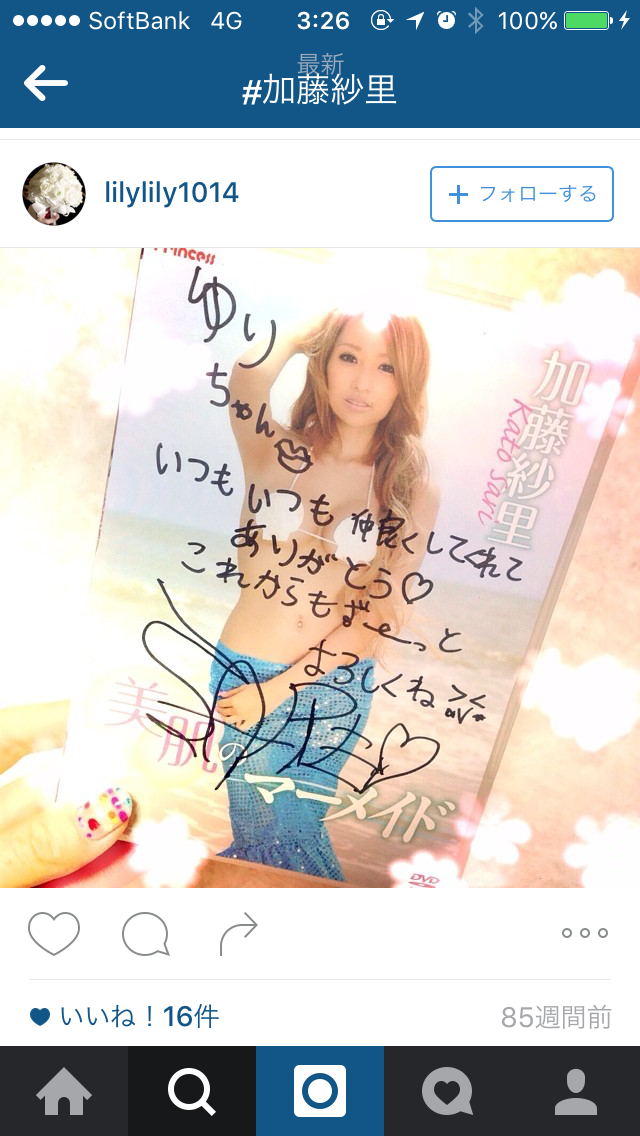 SoftBank 4G 3:26 100%
最新
#加藤紗里
lilylily1014
+ フォローする
Princess
ゆり
ちゃん
いつもいつも仲良くしてくれて
ありがとう♡
これからもずーっと
よろしくね
加藤紗里
Kato Sari
美肌の
マーメイド
DVD
いいね！16件
85週間前